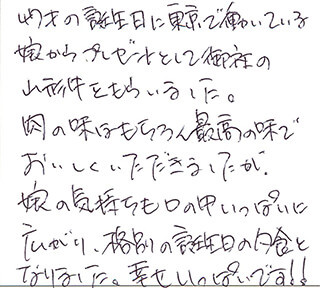 才の誕生日に東京で働いている
娘から、プレゼントとして御社の
山形牛をもらいました。
肉の味はもちろん最高の味で
おいしくいただきましたが、
娘の気持ちも口の中いっぱいに
広がり、格別の誕生日の夕食と
なりました。幸せいっぱいです!!